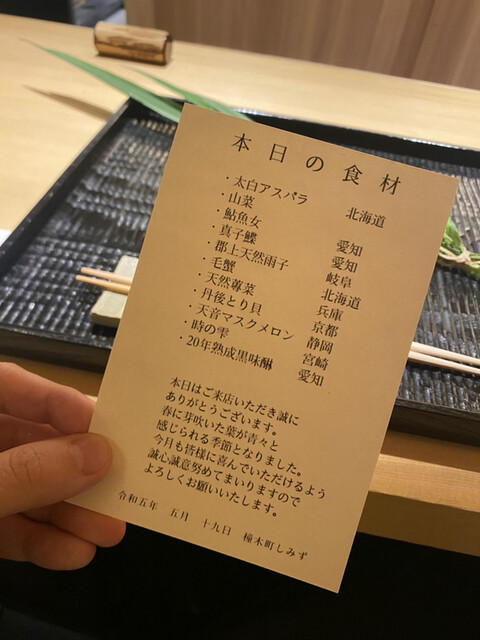 本日の食材
・太白アスパラ 北海道
・山菜
・鮎魚女 愛知
・真子鰈 愛知
・郡上天然雨子 岐阜
・毛蟹 北海道
・天然蓴菜 兵庫
・丹後とり貝 京都
・天音マスクメロン 静岡
・時の雫 宮崎
・20年熟成黒味醂 愛知
本日はご来店いただき誠に
ありがとうございます。
春に芽吹いた葉が青々と
感じられる季節となりました。
今月も皆様に喜んでいただけるよう
誠心誠意努めてまいりますので
よろしくお願いいたします。
令和五年 五月 十九日 橦木町しみず